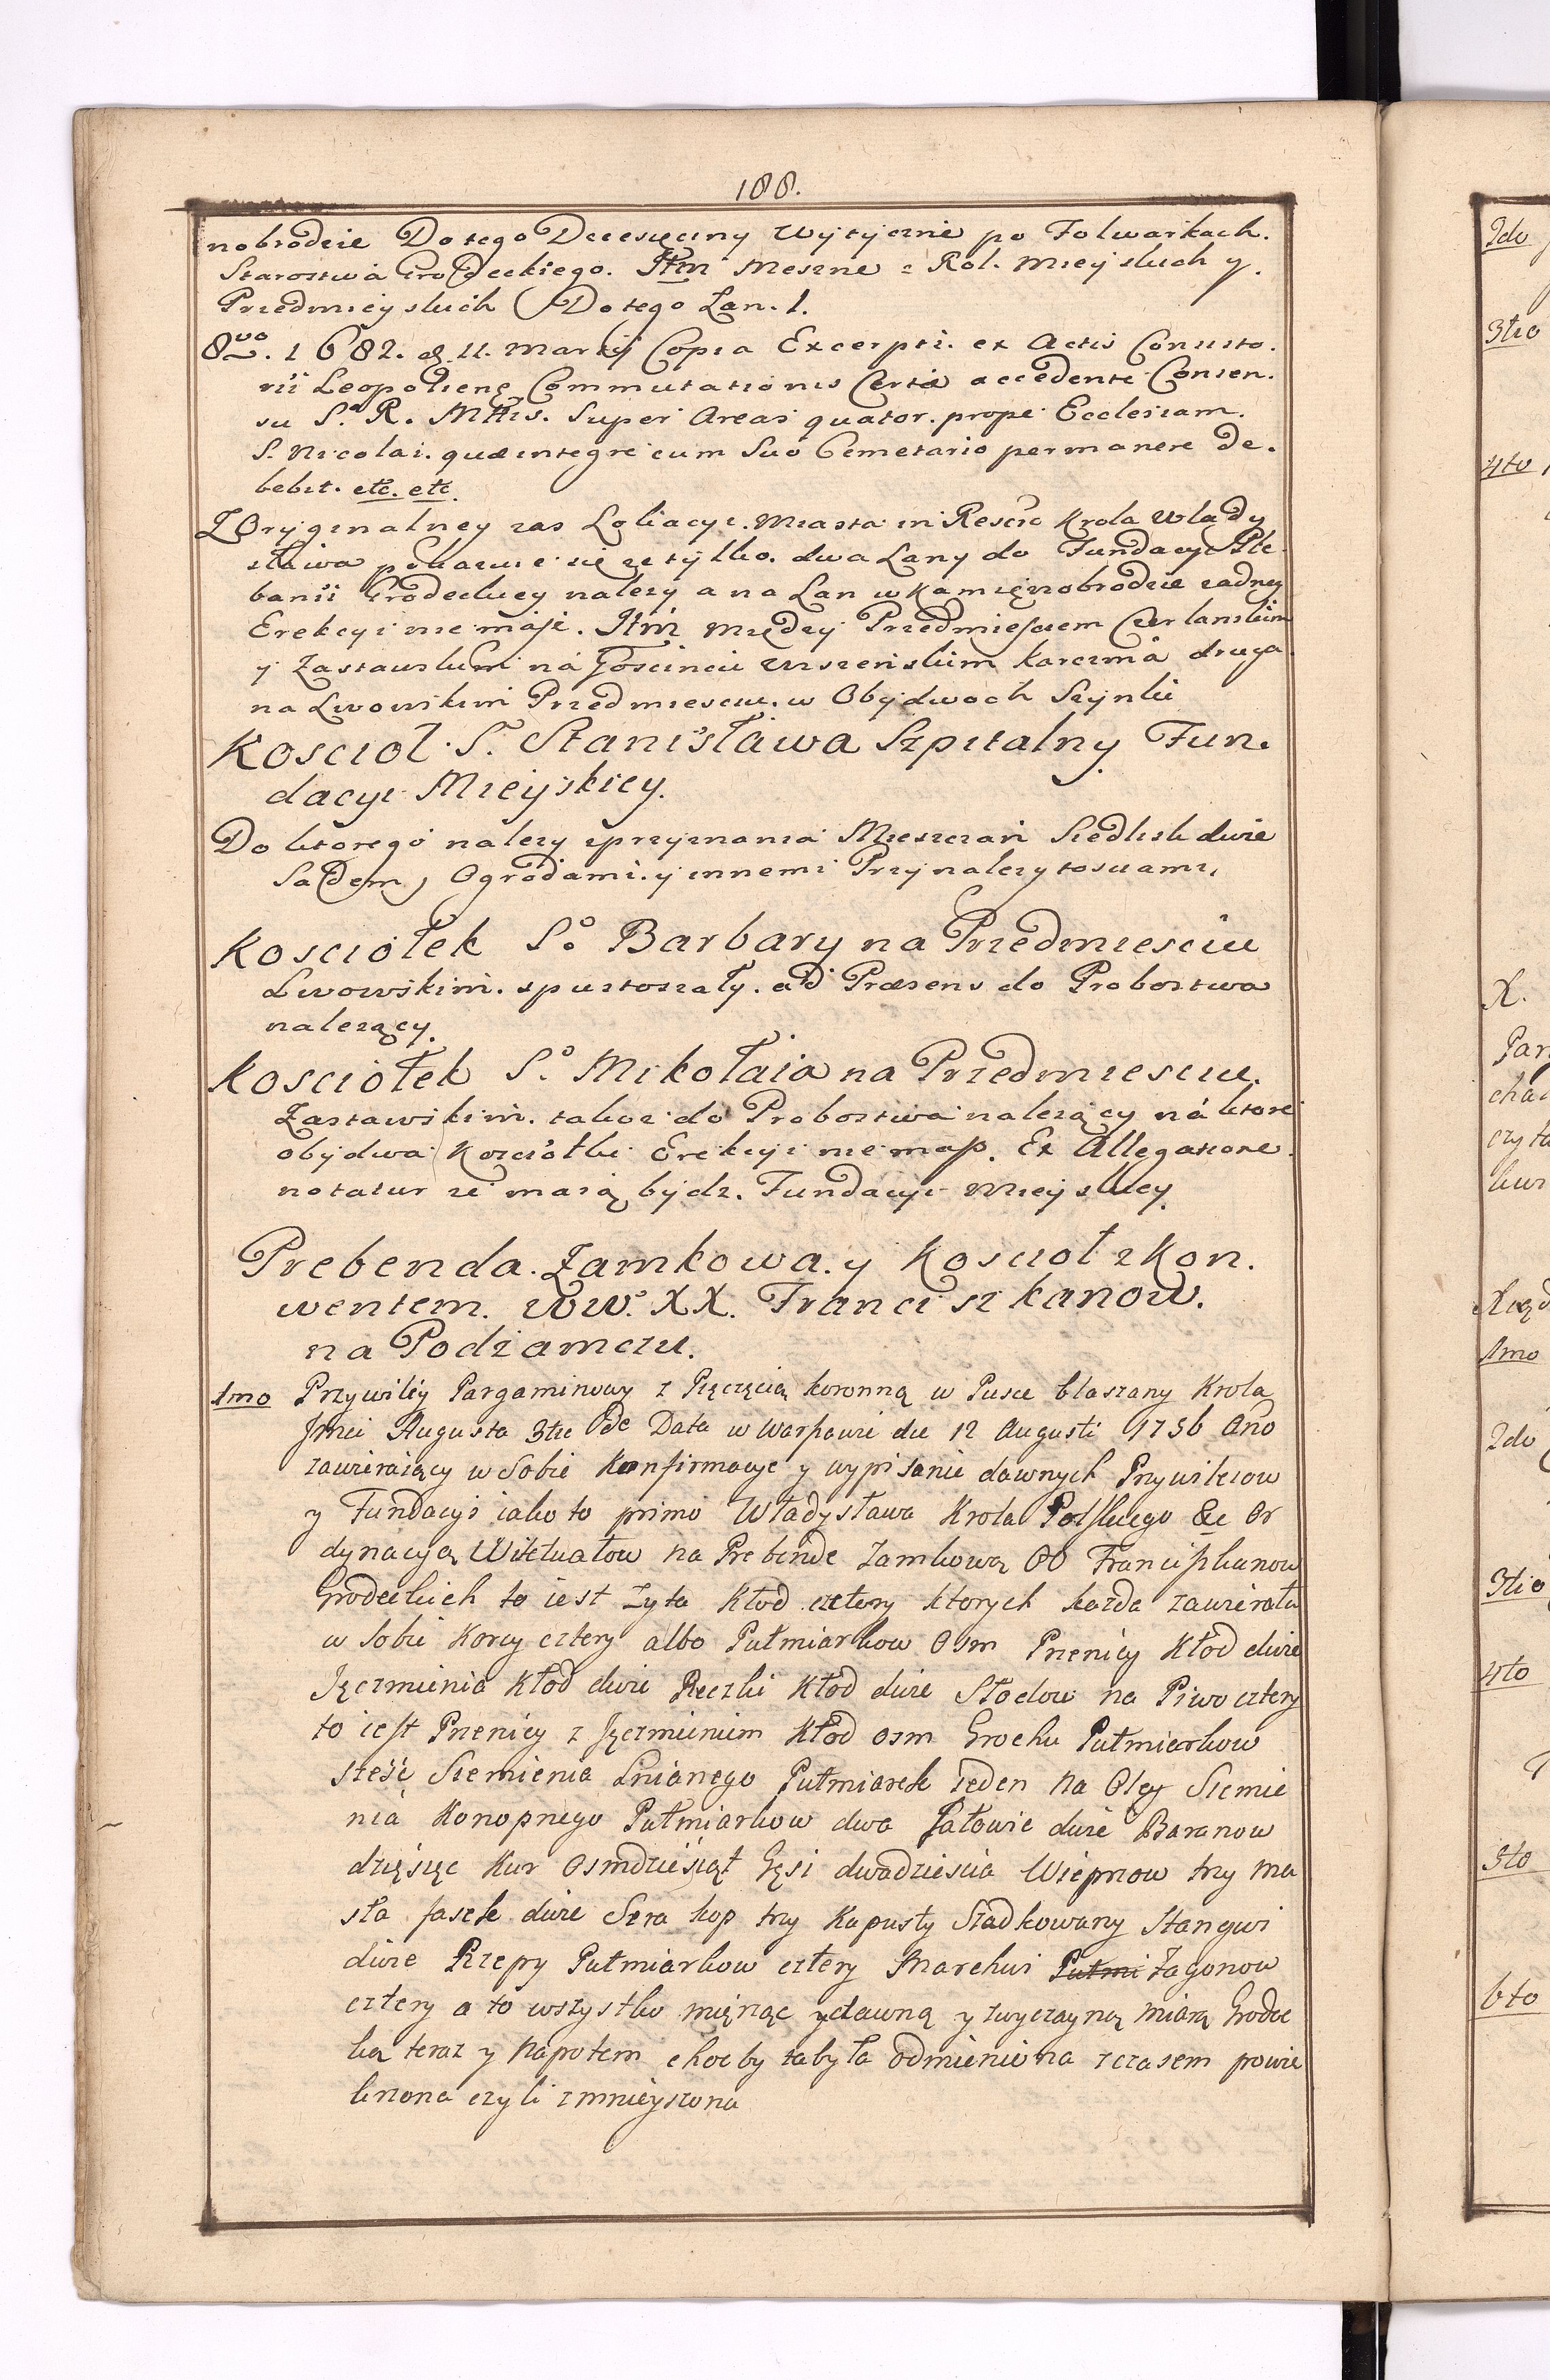 188.
nobrodzie Do tego Dziesięciny Wytyczne po Folwarkach.
Starostwa Grodeckiego. Itm Meszne z Rol. Mieyskich y.
Przedmieyskich Do tego Lan. 1.
8vo. 1682. d. 11. Martij Copia Excerpti. ex Actis Consisto.
rii Leopoliens Commutationis Certæ accedente Consen.
su S. R. Mttis. Super Areas quator. prope Ecclesiam.
S. Nicolai. quæ integre cum Suo Cemetario permanere de.
bebit. etc. etc.
Z Oryginalney zas Miasta Krola Wlady
sława pokazuie się ze tylko. dwa Lany do Fundacyi Ple
banii Grodeckiey nalezy a na Lan w Kamięnobrodzie zadney
Erekcyi nie maję. Itm między Przedmiesciem Czerlanskim
y Zastawskim na Goscincu karczma druga.
na Lwowskim Przedmiesciu. w Obydwoch Szynki
Kosciol. S. Stanisława Szpitalny Fun.
dacyi Mieyskiey.
Do ktorego nalezy z przyznania Mieszczan Siedlisk dwie
Sadem, Ogrodami. y innemi Przynalezytosciami,
Kosciołek So. Barbary na Przedmiesciu
Lwowskim. spustoszały. ad Præsens do Probostwa
nalezący.
Kosciołek So. Mikołaia na Przedmiesciu.
Zastawskim. takoz do Probostwa nalezący na ktore
obydwa Kosciołki Erekcyi nie mają. Ex Allegatione.
notatur ze maią bydz. Fundacyi Mieyskiey.
Prebenda. Zamkowa. y Kosciol z Kon.
wentem. WW. XX. Franciszkanow.
na Podzamczu.
1mo Przywiley Pargaminowy z Pięczęcią koronną w Pusce blaszany Krola
Jmci Augusta 3tie de Data w Warszawie die 12 Augusti 1756 Ano
zawieraiący w Sobie Konfirmacye y wypisanie dawnych Przywileiow
y Fundacyi iako to primo Władysława Krola Polskiego &c Or
dynacyą Wiktuałow na Prebende Zamkową OO Franciszkanow
Grodeckich to iest Zyta Kłod cztery ktorych kazda zawierała
w Sobie Korcy cztery albo Pułmiarkow Osm Pzenicy Kłod dwie
Jęczmienia Kłod dwie Reczki Kłod dwie Słodow na Piwo cztery
to iest Pzenicy z Jęczmieniem Kłod osm Grochu Pułmiarkow
sześć Siemienia Lnianego Pułmiarek ieden na Oley Siemie
nia Konopnego Pułmiarkow dwa Jałowie dwie Baranow
dzięsięc Kur Osmdziesiąt Gęsi dwadziescia Wieprzow trzy ma
sła fasek dwie Sera kop trzy Kapusty Siadkowany Stangwi
dwie Rzepy Pułmiarkow cztery Marchwi Pułmi Zagonow
cztery a to wszystko mięrząc dawną y zwyczayną miarą Grodec
ką teraz y napotem choćby ta była odmieniona z czasem powię
kszona czyli zmnieyszona
2do
3tio
4to
X.
1mo
2do
3tio
4to
5to
6to